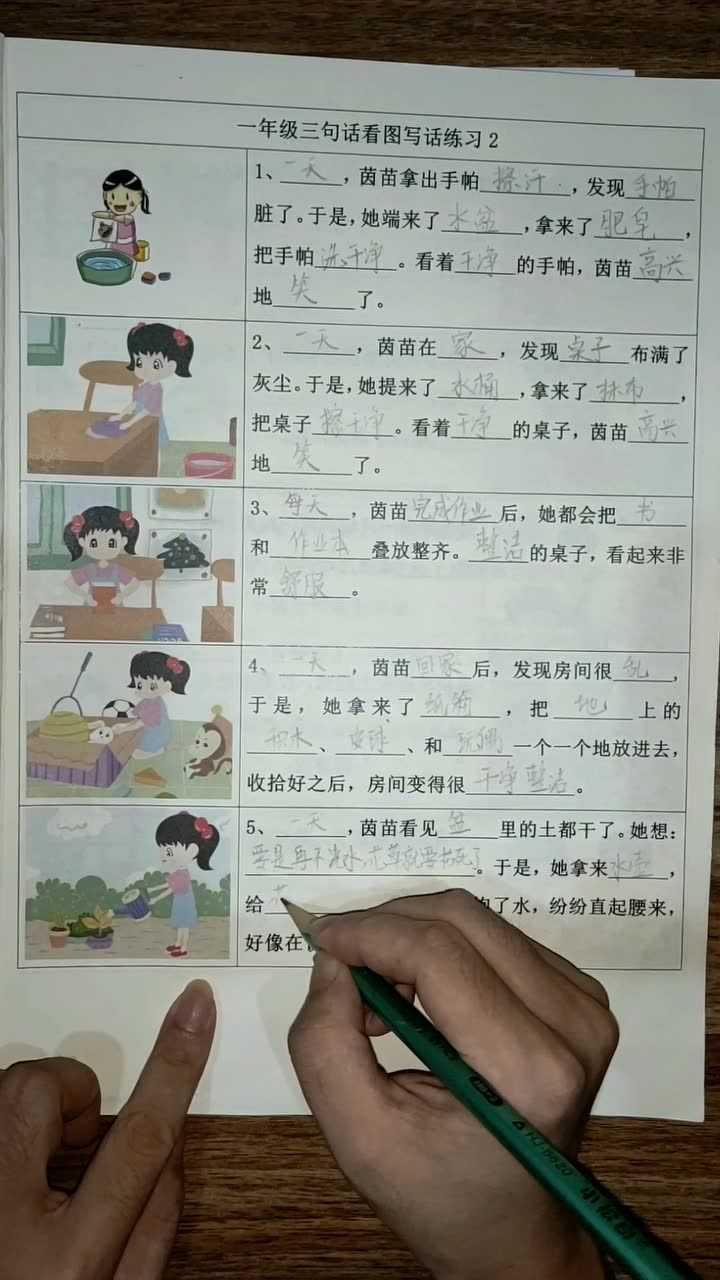 一年级三句话看图写话练习2
1、一天，茵苗拿出手帕擦汗，发现手帕
脏了。于是，她端来了水盆，拿来了肥皂，
把手帕洗干净。看着干净的手帕，茵苗高兴
地笑了。
2、一天，茵苗在家，发现桌子布满了
灰尘。于是，她提来了水桶，拿来了抹布，
把桌子擦干净。看着干净的桌子，茵苗高兴
地笑了。
3、每天，茵苗完成作业后，她都会把书
和作业本叠放整齐。整洁的桌子，看起来非
常舒服。
4、一天，茵苗回家后，发现房间很乱，
于是，她拿来了纸箱，把地上的
积木、皮球、和玩偶一个一个地放进去，
收拾好之后，房间变得很干净整洁。
5、一天，茵苗看见盆里的土都干了。她想：
要是再不浇水，花草就要枯死了。于是，她拿来水壶，
给花 了水，纷纷直起腰来，
好像在